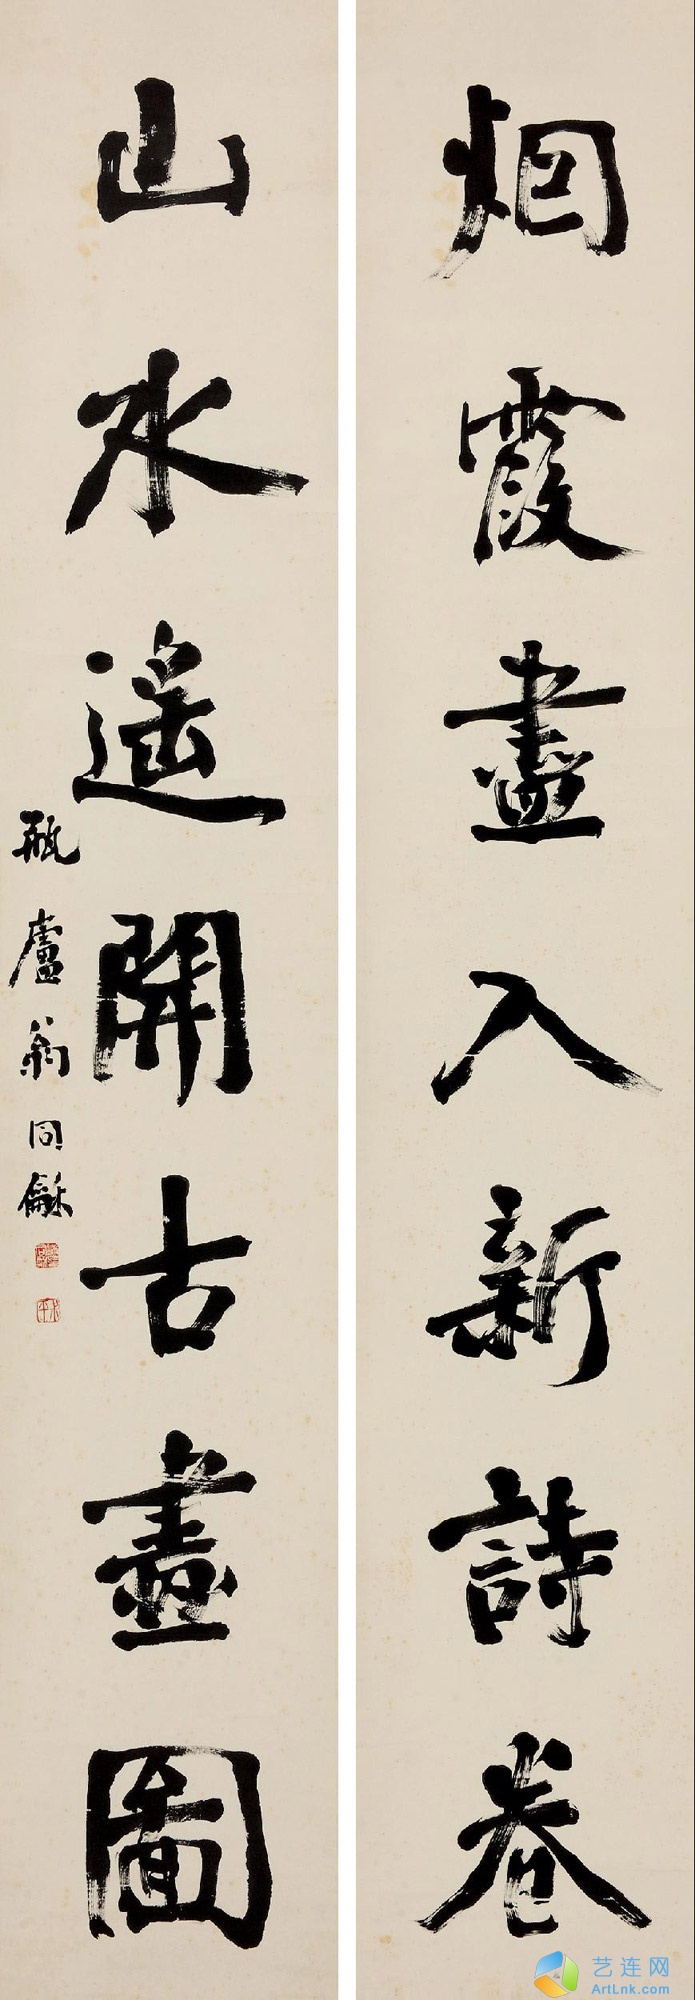 烟霞盡入新詩卷
山水遥開古畫圖
瓶廬翁同龢
艺连网
ArtLnk.com